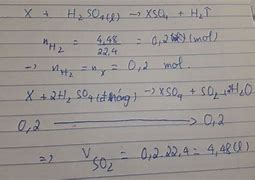 X + H₂SO₄(l) → XSO₄ + H₂↑
n_H₂ = 4,48/22,4 = 0,2 (mol)
→ n_H₂ = n_x = 0,2 mol.
X + 2H₂SO₄(đ nóng) → XSO₄ + SO₂ + 2H₂O
0,2 → 0,2
⇒ V_SO₂ = 0,2.22,4 = 4,48(l)